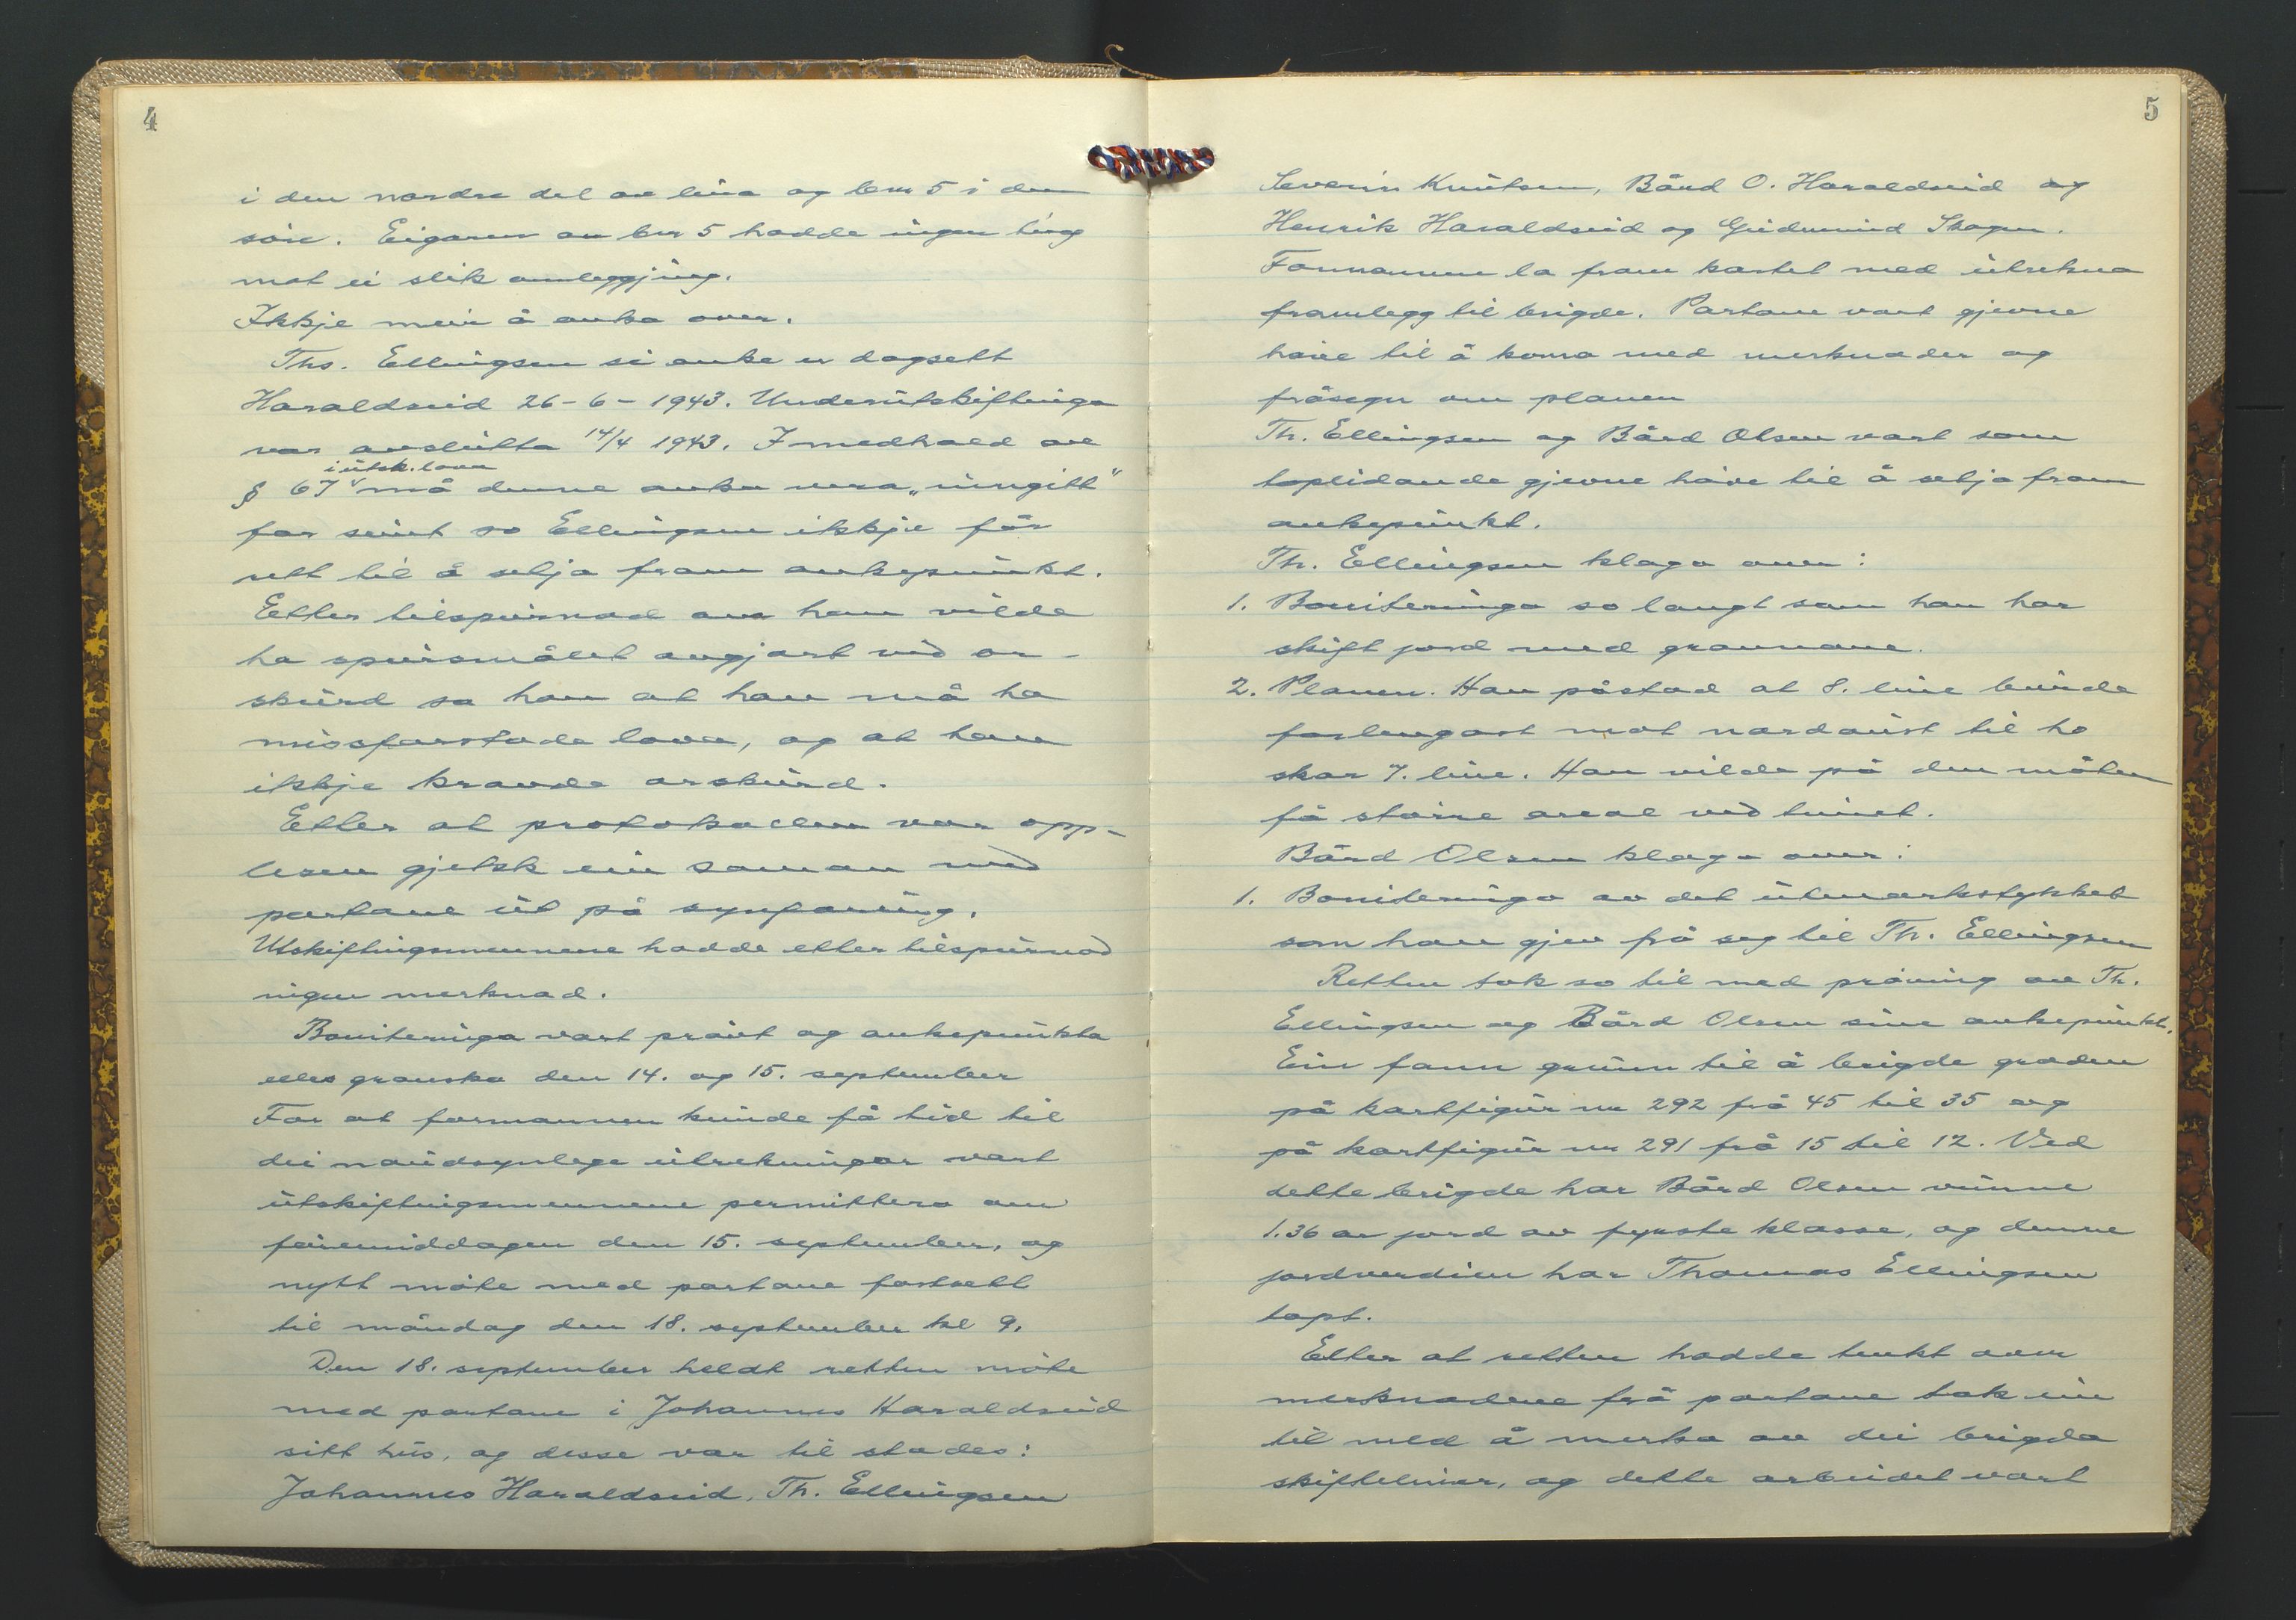 4
i den nordre del av lina og bnr 5 i den
søre. Eigaren av bnr 5 hadde ingen ting
mot ei slik omleggjing.
Ikkje meir å anka over.
Ths. Ellingsen si anke er dagsett
Haraldseid 26-6-1943. Underutskiftinga
var avslutta 14/4 1943. I medhald av
i utsk. lova
§ 67 må denne anka vera „inngitt"
for seint so Ellingsen ikkje får
rett til å selja fram ankepunkt.
Etter tilspurnad om han vilde
ha spursmålet avgjort ved or-
skurd sa han at han må ha
missforstade lova, og at han
ikkje kravde orskurd.
Etter at protokollen var opp-
lesen gjekk ein saman med
partane ut på synfaring.
Utskiftingsmennene hadde etter tilspurnad
ingen merknad.
Boniteringa vart prøvt og ankepunkta
elles granska den 14. og 15. september
For at formannen kunde få tid til
dei naudsynlege utrekningar vart
utskiftingsmennene permittera om
føremiddagen den 15. september, og
nytt møte med partane fastsett
til måndag den 18. september kl 9.
Den 18. september heldt retten møte
med partane i Johannes Haraldseid
sitt hus, og desse var til stades:
Johannes Haraldseid, Th. Ellingsen
5
Severin Knutsen, Bård O. Haraldseid og
Henrik Haraldseid og Gudmund Skogen.
Formannen la fram kartet med utrekna
framlegg til brigde. Partane vart gjevne
høve til å koma med merknader og
fråsegn om planen
Th. Ellingsen og Bård Olsen vart som
toplidande gjevne høve til å selja fram
ankepunkt.
Th. Ellingsen klaga over:
1. Boniteringa so langt som han har
skift jord med grannane.
2. Planen. Han påstod at 8. line burde
forlengast mot nordaust til ho
skar 7. line. Han vilde på den måten
få større areal ved tunet.
Bård Olsen klaga over:
1. Boniteringa av det utmarkstykket
som han gjev frå seg til Th. Ellingsen
Retten tok so til med prøving av Th.
Ellingsen og Bård Olsen sine ankepunkt.
Ein fann grunn til å brigde graden
på kartfigur nr 292 frå 45 til 35 og
på kartfigur nr 291 frå 15 til 12. Ved
dette brigde har Bård Olsen vunne
1.36 ar jord av fyrste klasse, og denne
jordverdien har Thomas Ellingsen
tapt.
Etter at retten hadde tenkt over
merknadene frå partane tok ein
til med å merka av dei brigda
skiftelinor, og dette arbeidet vart